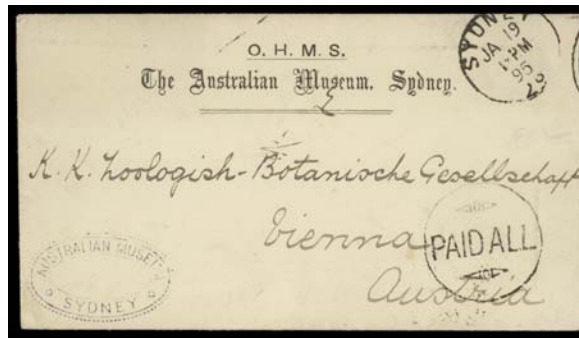 O. H. M. S.
The Australian Museum, Sydney.
SYDNEY
JA 19
PM
95
K. K. Zoologish-Botanische Gesellschaft
Vienna
PAID ALL
Austria
AUSTRALIAN MUSEUM
SYDNEY